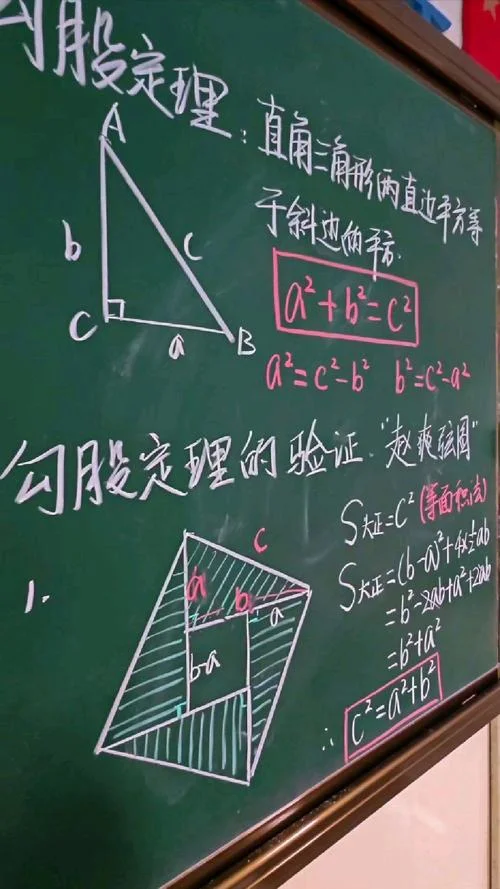 勾股定理：直角三角形两直边平方等
于斜边的平方.
A
b
c
C
a
B
a²+b²=c²
a²=c²-b² b²=c²-a²
勾股定理的验证."赵爽弦图"
1.
c
a
b
a
b-a
S大正=c²(等面积法)
S大正=(b-a)²+4×½ab
=b²-2ab+a²+2ab
=b²+a²
∴ c²=a²+b²